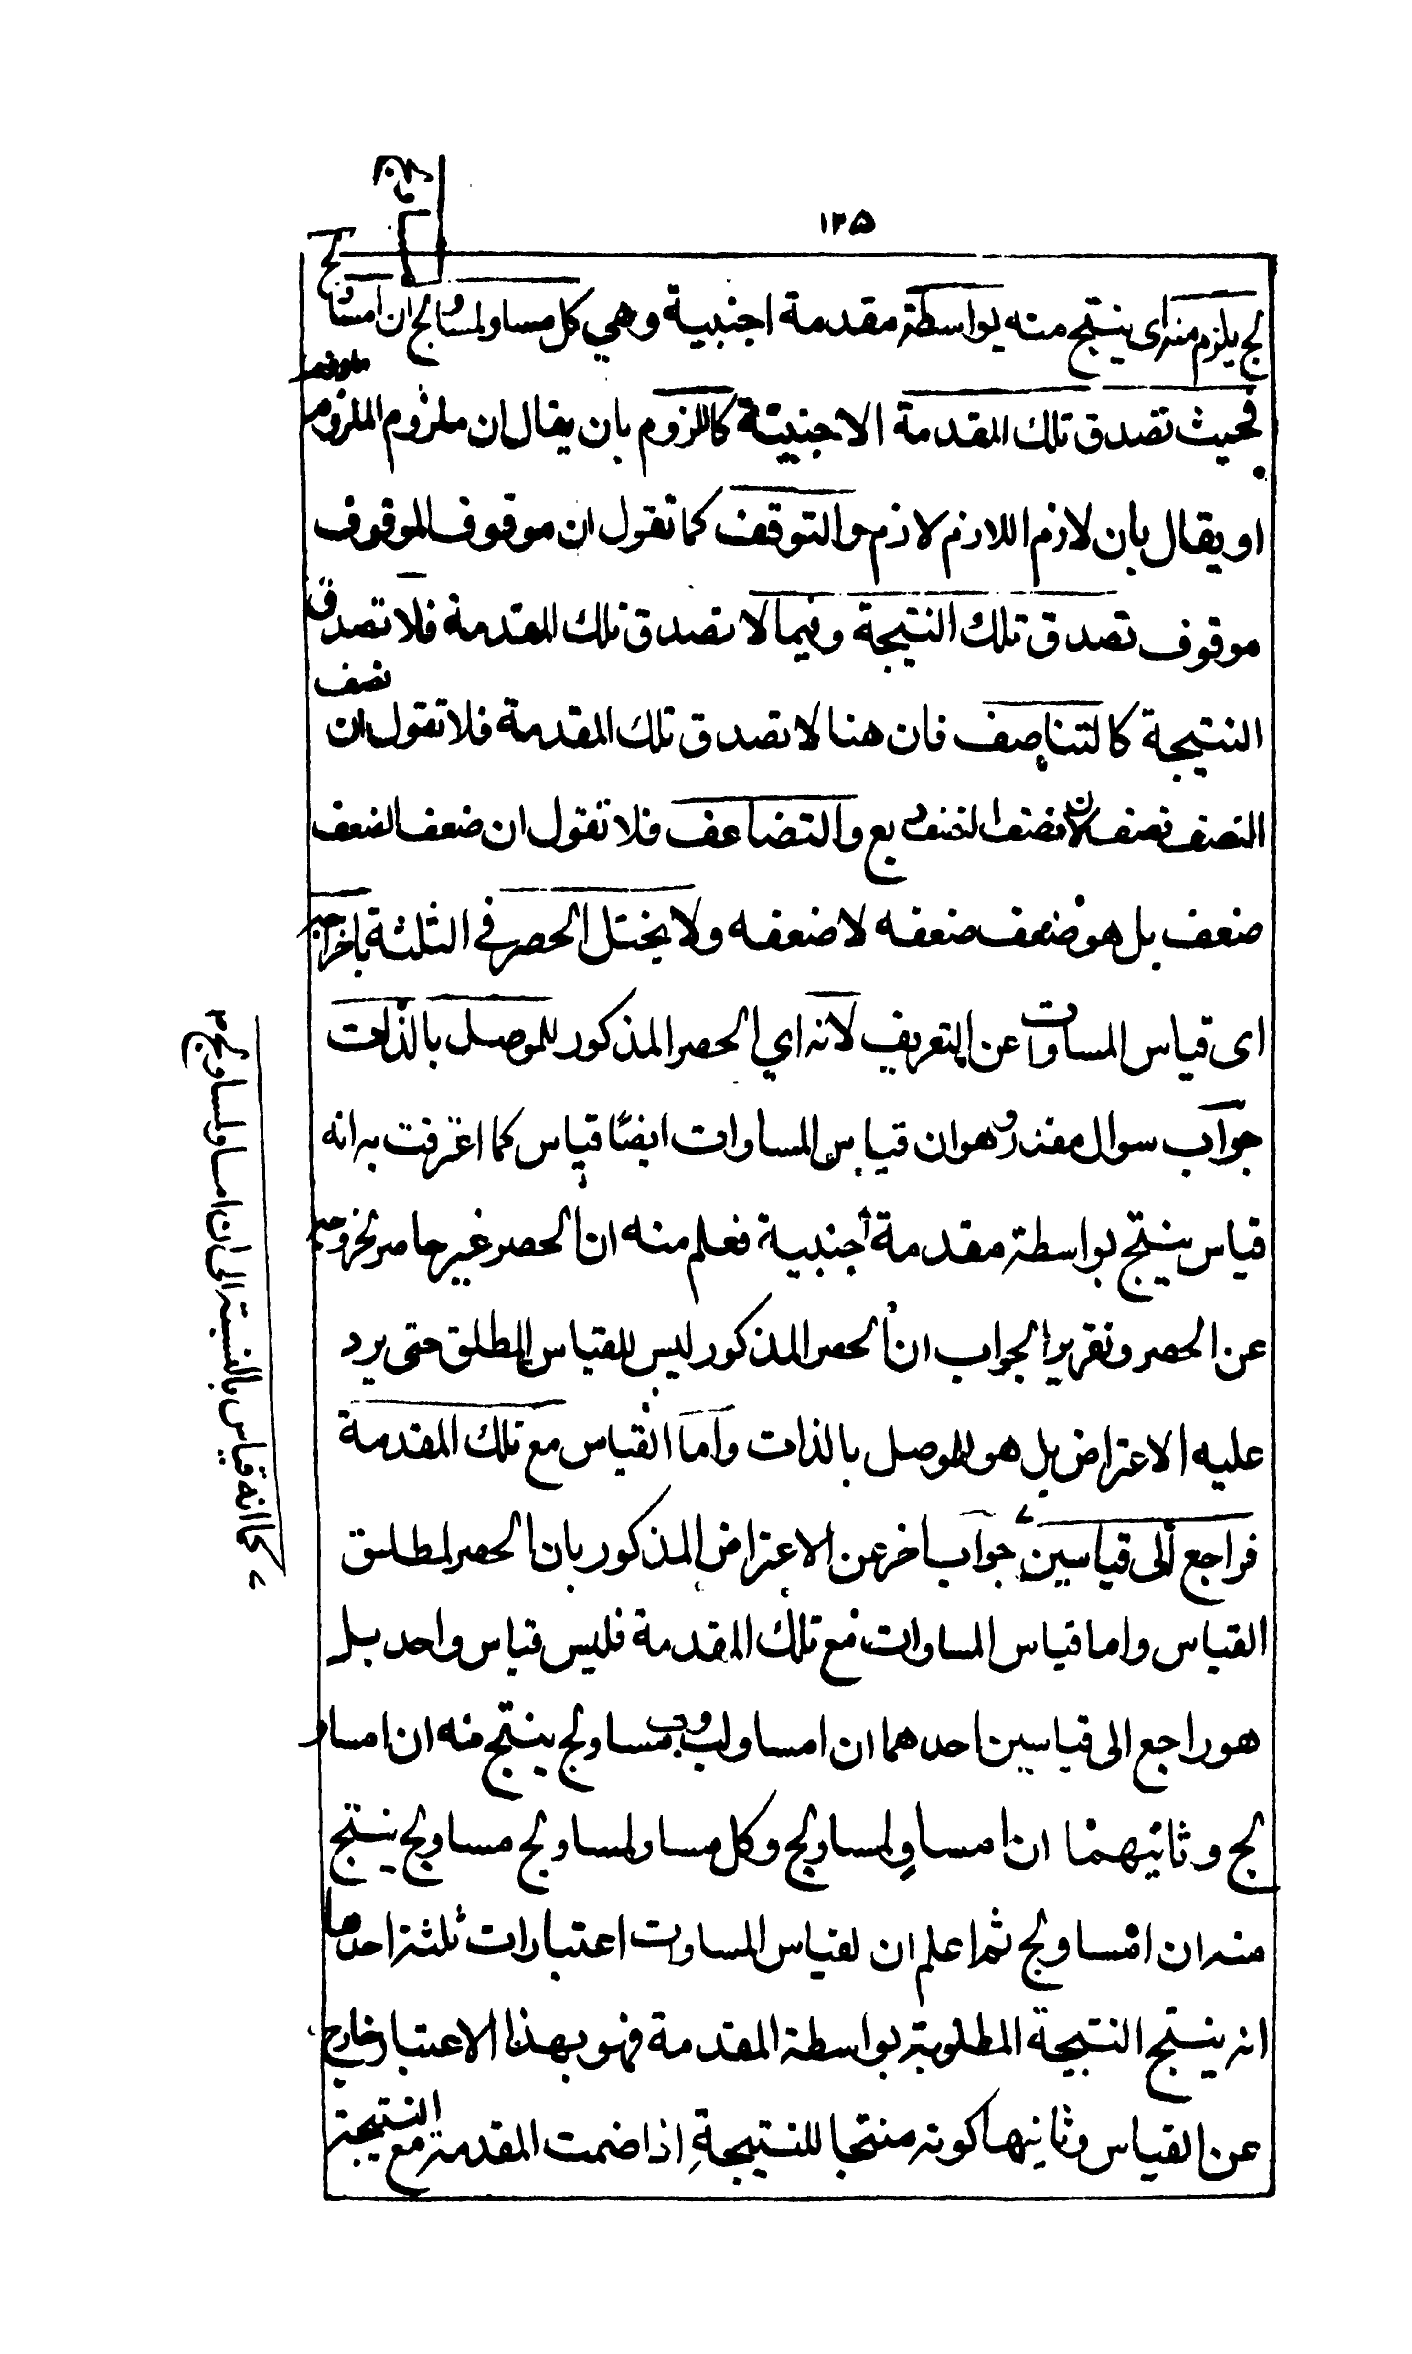 ١٢٥
لج يلزم منه اى ينتج منه بواسطة مقدمة اجنبية وهي كل مساو لمساو لج ان امساو لج
فحيث تصدق تلك المقدمة الاجنبية كاللزوم بان يقال ان ملزوم الملزوم ملزوم
او يقال بان لازم اللازم لازم والتوقف كما تقول ان موقوف الموقوف
موقوف تصدق تلك النتيجة وفيما لا تصدق تلك المقدمة فلا تصدق
النتيجة كالتناصف فان هنا لا تصدق تلك المقدمة فلا تقول ان نصف
النصف نصف لان نصف النصف ربع والتضاعف فلا تقول ان ضعف الضعف
ضعف بل هو ضعف ضعفه لا ضعفه ولا يختل الحصر في الثلثة باخراجه
اى قياس المساوات عن التعريف لانه اي الحصر المذكور للموصل بالذات
جواب سوال مقدر وهو ان قياس المساوات ايضا قياس كما اعترفت به انه
قياس ينتج بواسطة مقدمة اجنبية فعلم منه ان الحصر غير حاصر لخروجه
عن الحصر وتقرير الجواب ان الحصر المذكور ليس للقياس المطلق حتى يرد
عليه الاعتراض بل هو للموصل بالذات واما القياس مع تلك المقدمة
فراجع الى قياسين جواب اخر عن الاعتراض المذكور بان الحصر لمطلق
القياس واما قياس المساوات مع تلك المقدمة فليس قياس واحد بل
هو راجع الى قياسين احدهما ان امساو لب وب مساو لج ينتج منه ان امساو
لج وثانيهما ان امساو لمساو لج وكل مساو لمساو لج مساو لج ينتج
منه ان امساو لج ثم اعلم ان لقياس المساوات اعتبارات ثلثة احدها
انه ينتج النتيجة المطلوبة بواسطة المقدمة فهو بهذا الاعتبار خارج
عن القياس وثانيها كونه منتجا للنتيجة اذا ضمت المقدمة مع النتيجة
كما انه قياس بالنسبة الى ان امساو لمساو لج